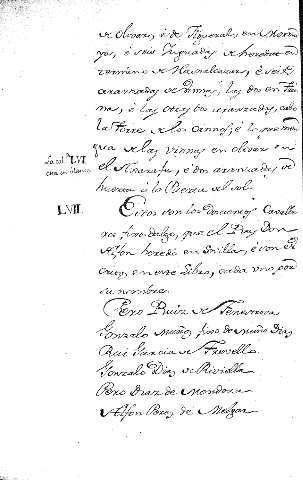 de olivar, é de Figueral, en Mormo
jos, é seis Yugadas de heredat en
termino de Haznalcazar, é seis
aranzadas de Vinnas, las dos en
é las otras dos aranzadas, cabo
la torre de los Cannos, é lo que men
gua de las vinnas en olivar en
el Axarafe, é dos aranzadas de
huerta á la Puerta del sol.
La col.ª LVI
esta en blanco
LVII. Estos son los Docientos Cavalle
ros fijos-dalgo, que el Rey Don
Alfon heredó en Sevilla, é son Es
critos en este Libro, cada uno por
su nombre.
Pero Ruiz de
Gonzalo Muñoz, fijo de Muño Diaz
Rui Garcia de
Gonzalo Diaz de
Pero Diaz de Mendoza
Alfon Perez de Melgar